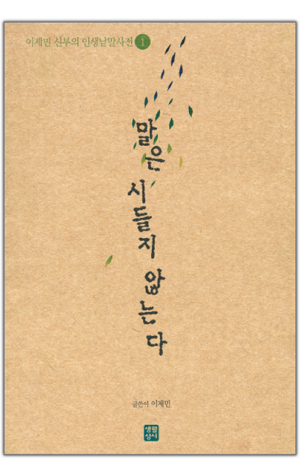 이제민 신부의 인생낱말사전 1
말은
시들지
않는다
글쓴이 이제민
생활
성서